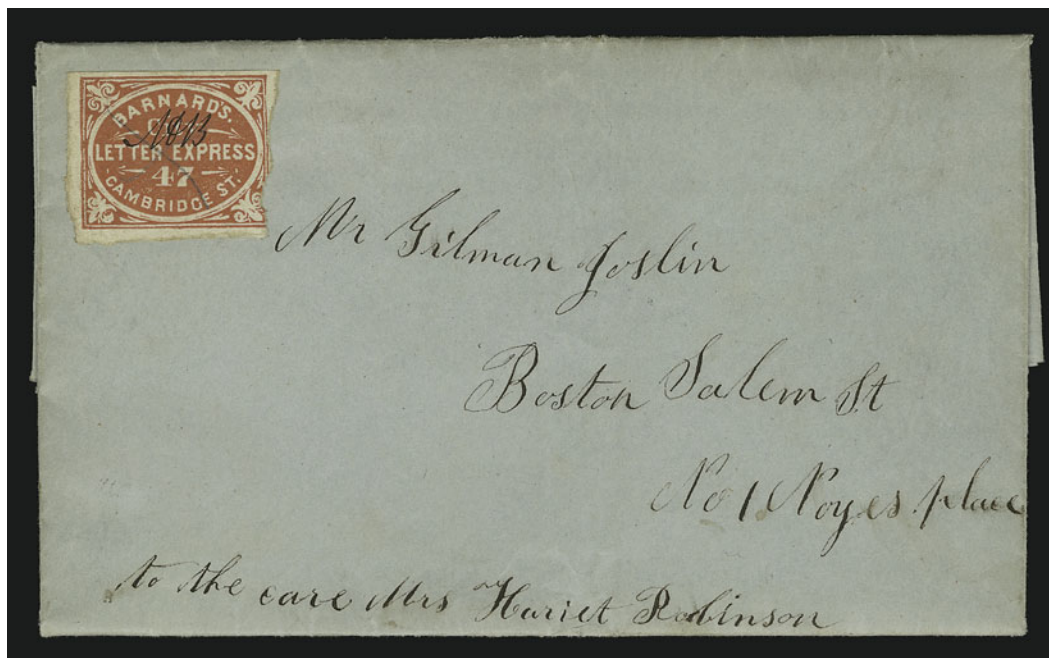 BARNARD'S.
CITY
LETTER EXPRESS
47
CAMBRIDGE ST.
Mr Gilman Joslin
Boston Salem St
No 1 Noyes place
to the care Mrs Harriet Robinson